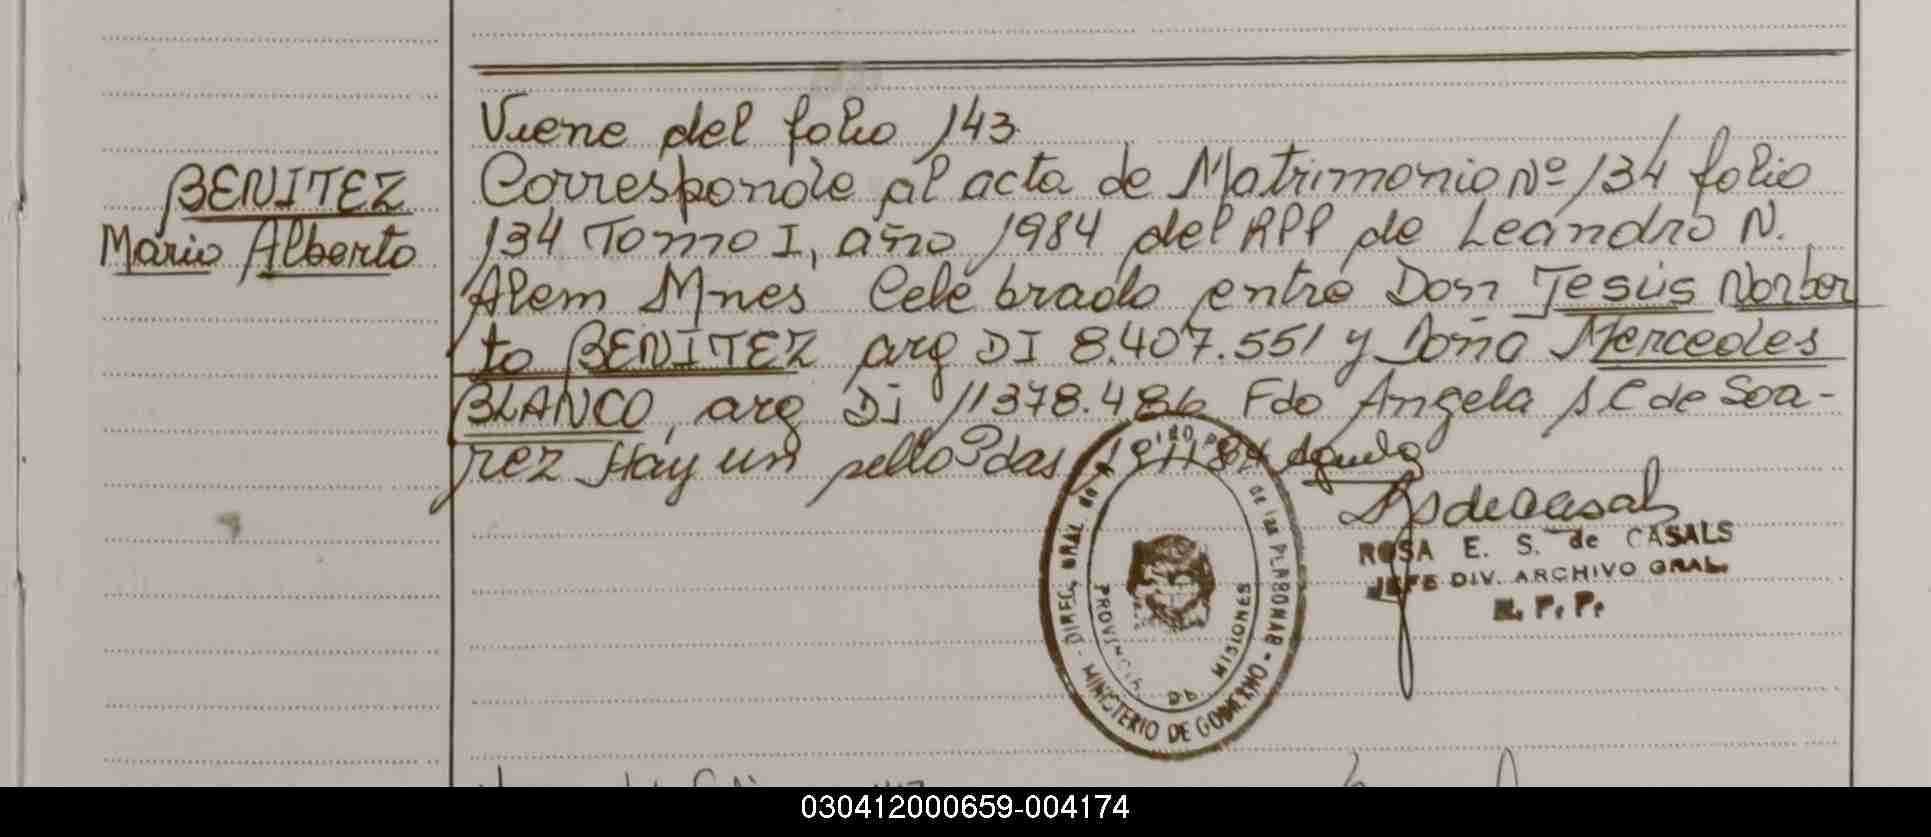 Viene del folio 143
BENITEZ
Mario Alberto
Corresponde al acta de Matrimonio Nº 134 folio
134 Tomo I, año 1984 del RPP de Leandro N.
Alem Mnes Celebrado entre Don Jesús Norber
to BENITEZ arg DI 8.407.551 y Doña Mercedes
BLANCO, arg DI 11378.486 Fdo Angela S.C de Soa-
rez Hay un sello Pdas
ROSA E. S. de CASALS
JEFE DIV. ARCHIVO GRAL.
R. P. P.
DIREC. GRAL. de las PERSONAS - MINISTERIO DE GOBIERNO -
PROVINCIA DE MISIONES
030412000659-004174